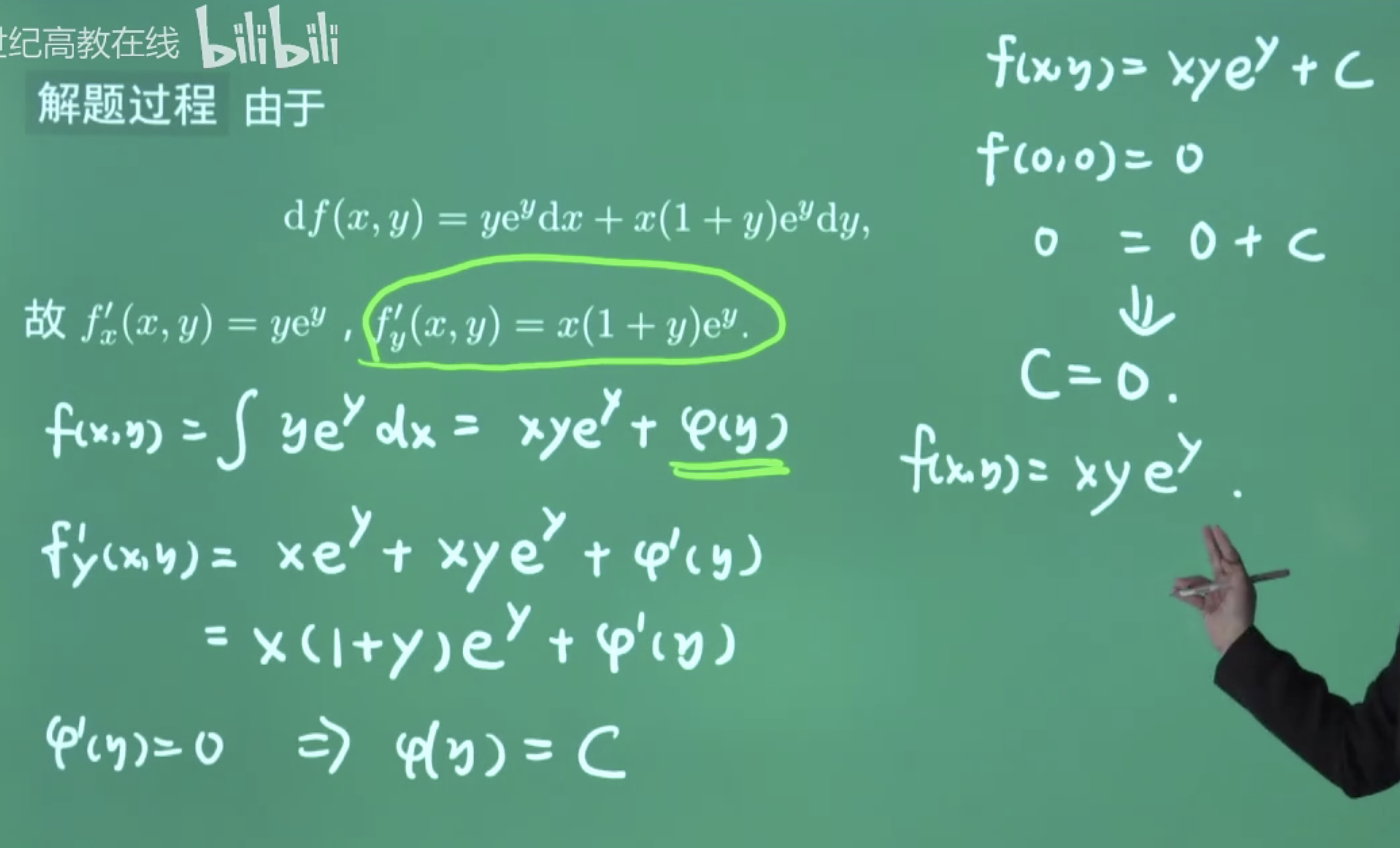 世纪高教在线 bilibili
解题过程 由于
df(x, y) = ye^y dx + x(1 + y)e^y dy,
故 f′_x(x, y) = ye^y , f′_y(x, y) = x(1 + y)e^y.
f(x,y) = ∫ ye^y dx = xye^y + φ(y)
f′_y(x,y) = xe^y + xye^y + φ′(y)
= x(1+y)e^y + φ′(y)
φ′(y)=0 ⇒ φ(y) = C
f(x,y) = xye^y + C
f(0,0) = 0
0 = 0 + C
⇓
C = 0.
f(x,y) = xye^y.